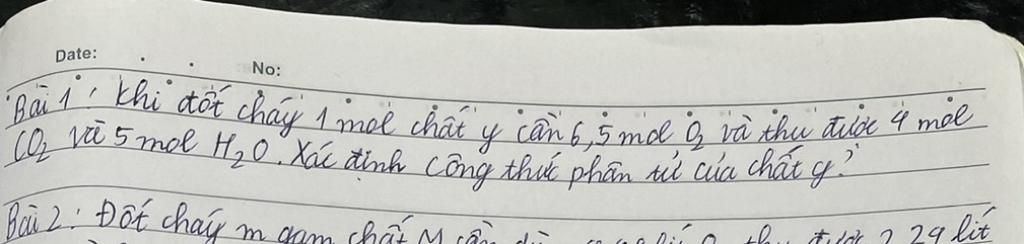 Date:
No:
Bài 1: Khi đốt cháy 1 mol chất y cần 6,5 mol O2 và thu được 4 mol
CO2 và 5 mol H2O. Xác định công thức phân tử của chất y?
Bài 2: Đốt cháy m gam chất M cần